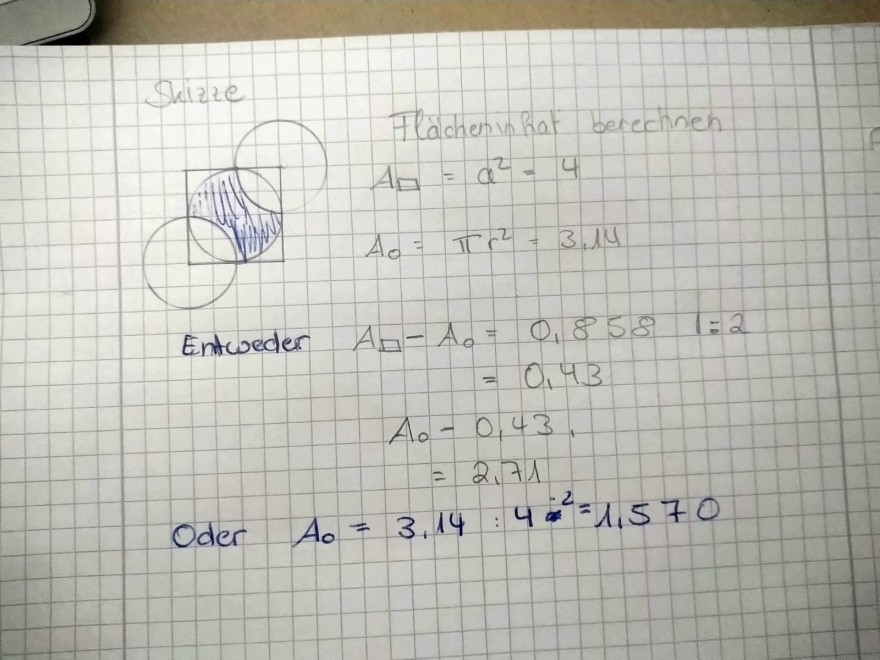 Skizze
Flächeninhat berechnen
A□ = a² = 4
A○ = πr² = 3,14
Entweder A□ - A○ = 0,858 |:2
= 0,43
A○ - 0,43
= 2,71
Oder A○ = 3,14 : 4 · 2 = 1,570